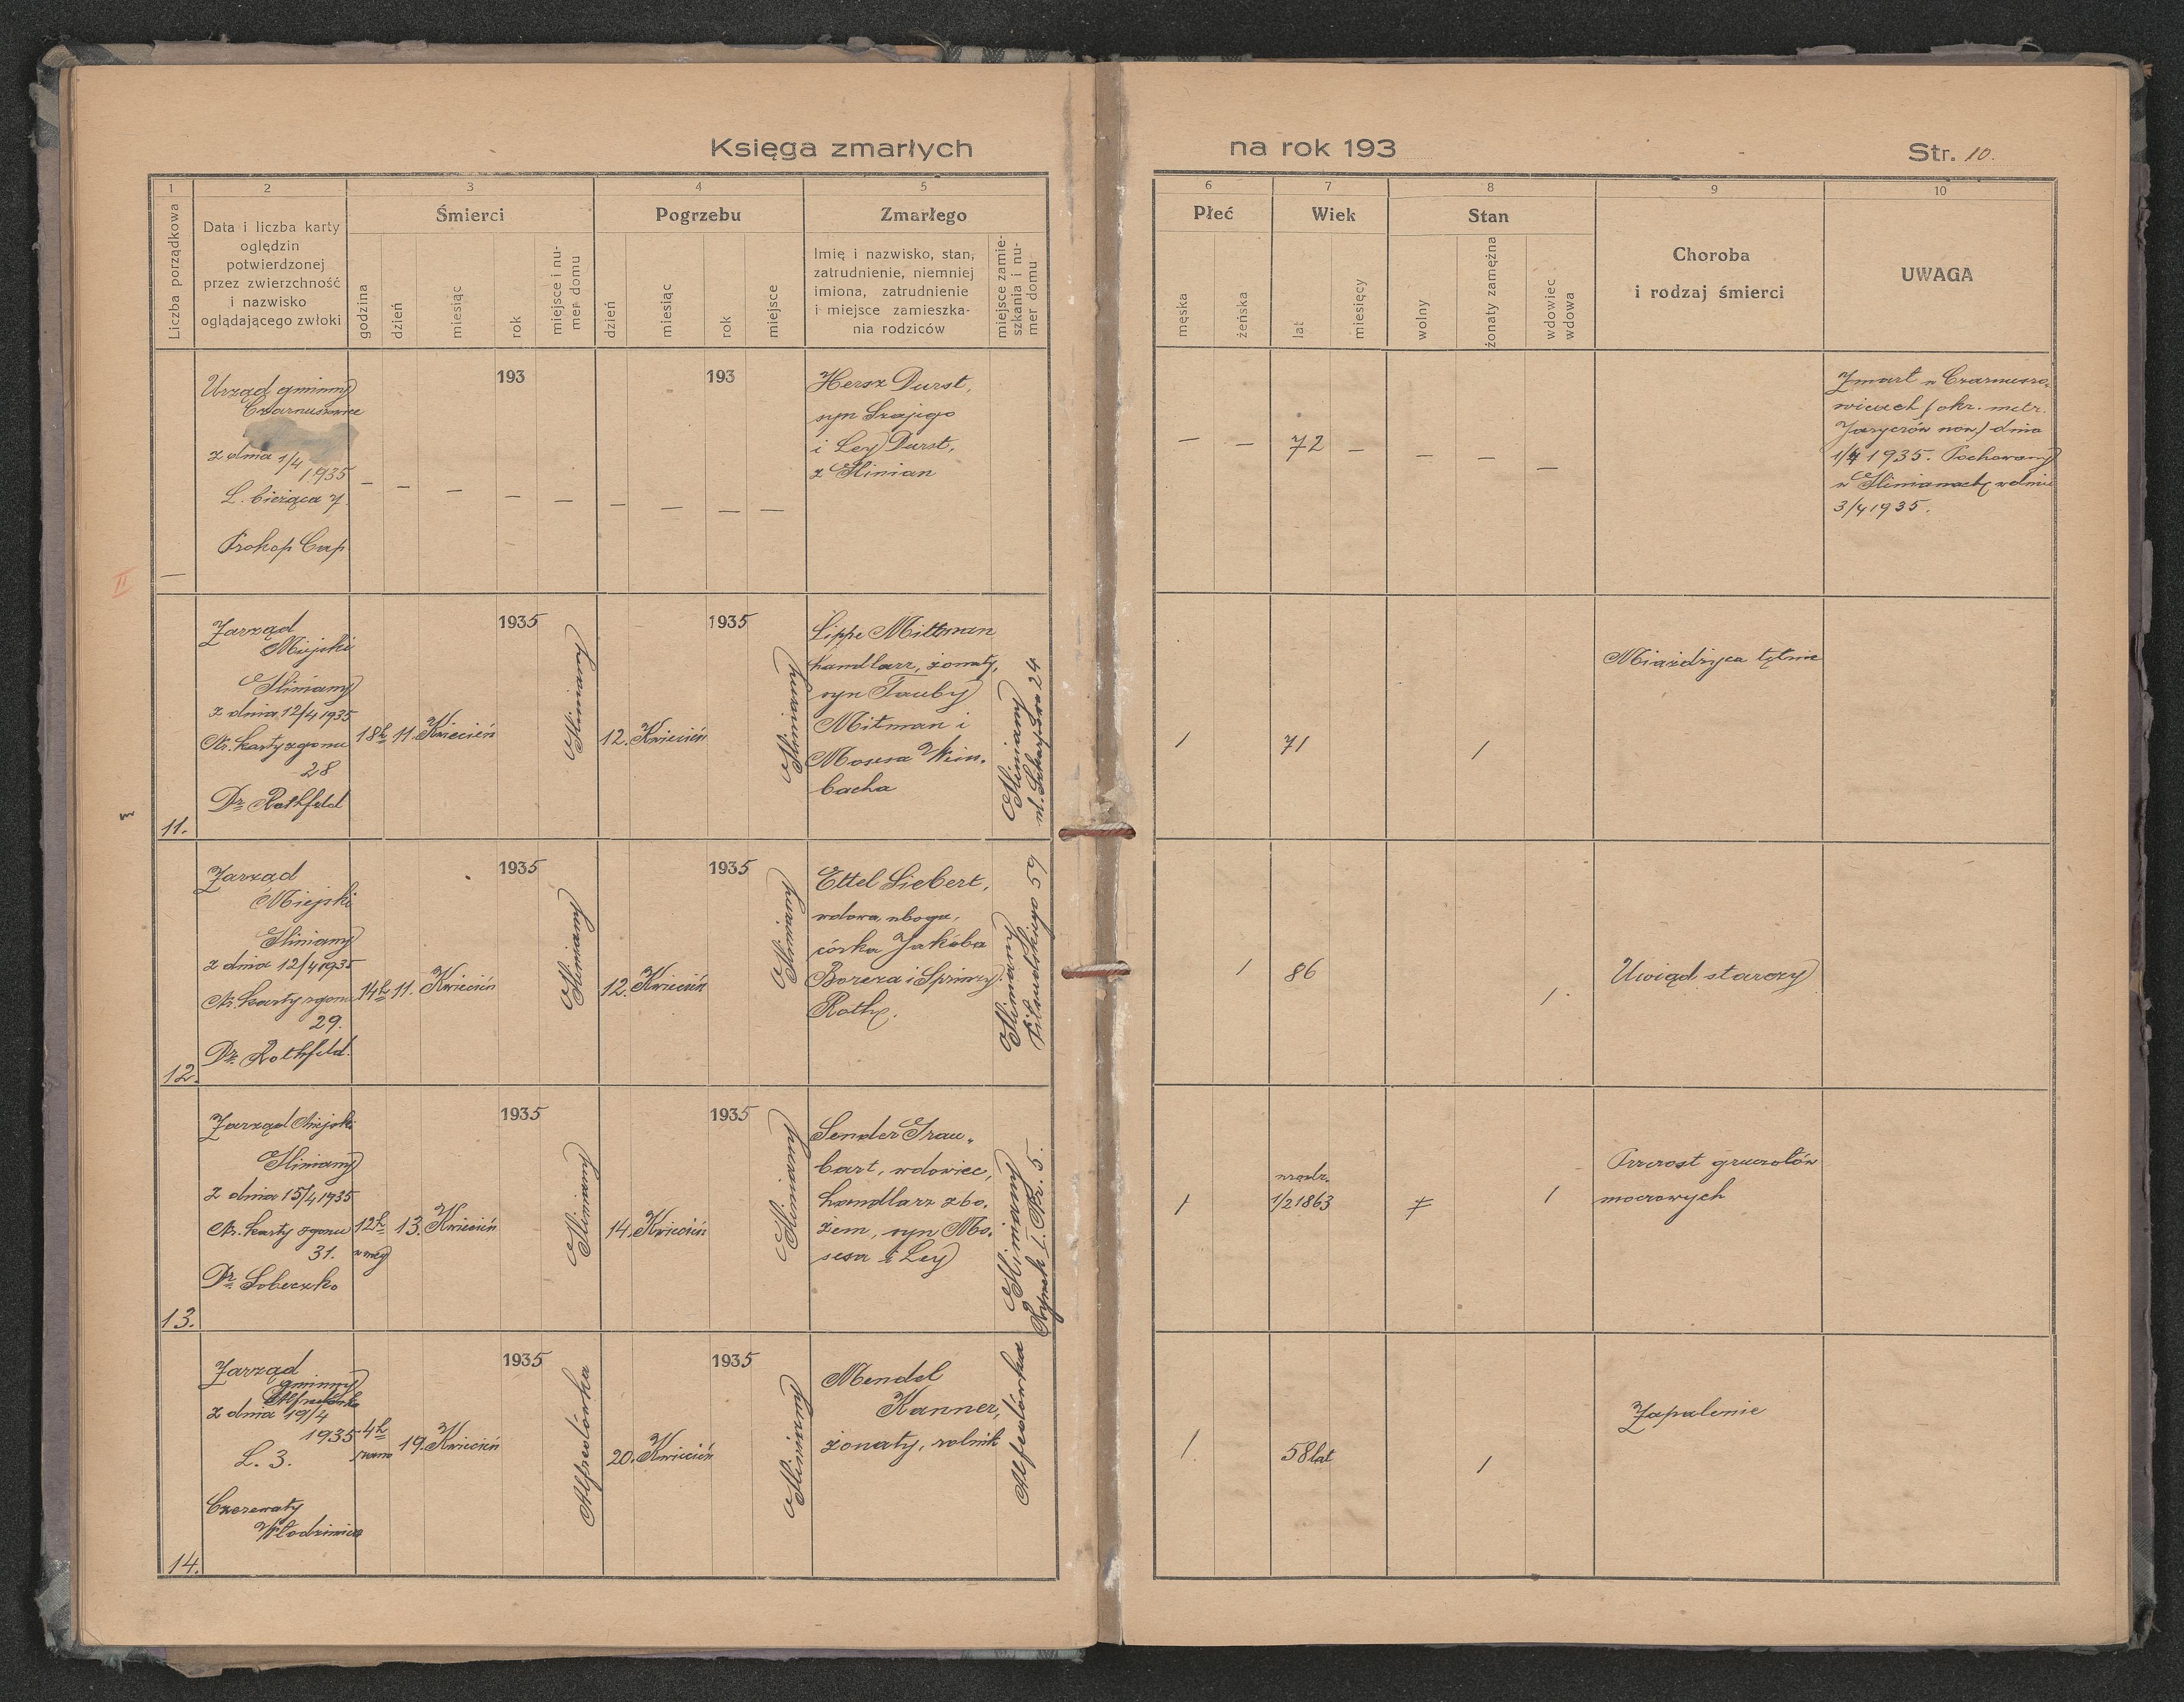 Księga zmarłych
na rok 193
Str. 10.
1
2
3
4
5
6
7
8
9
10
Liczba porządkowa
Data i liczba karty
oględzin
potwierdzonej
przez zwierzchność
i nazwisko
oglądającego zwłoki
Śmierci
godzina
dzień
miesiąc
rok
miejsce i nu-
mer domu
Pogrzebu
dzień
miesiąc
rok
miejsce
Zmarłego
Imię i nazwisko, stan,
zatrudnienie, niemniej
imiona, zatrudnienie
i miejsce zamieszka-
nia rodziców
miejsce zamie-
szkania i nu-
mer domu
Płeć
męska
żeńska
Wiek
lat
miesięcy
Stan
wolny
żonaty zamężna
wdowiec
wdowa
Choroba
i rodzaj śmierci
UWAGA
—
Urząd gminny
Czarnuszowice
z dnia 1/4
1935
L. bieżąca 7
Prokop Cap
— — — — —
193
— — — —
193
Hersz Durst,
syn Szajego
i Ley Durst,
z Glinian
— —
72 —
— — —
Zmarł w Czarnuszo-
wicach (okr. metr.
Jaryczów now.) dnia
1/4 1935. Pochowany
w Glinianach w dniu
3/4 1935.
II
11.
Zarząd
Miejski
Gliniany
z dnia 12/4 1935
Nr. karty zgonu
28
Dr Rothfeld
18h
11.
Kwiecień
1935
Gliniany
12.
Kwiecień
1935
Gliniany
Lippe Mittman
handlarz, żonaty,
syn Tauby
Mitman i
Mosesa Wein-
bacha
Gliniany
24
1
71
1
Miażdżyca tętnic
12.
Zarząd
Miejski
Gliniany
z dnia 12/4 1935
Nr. karty zgonu
29.
Dr. Rothfeld.
14h
11.
Kwiecień
1935
Gliniany
12.
Kwiecień
1935
Gliniany
Ettel Liebert,
wdowa, uboga,
córka Jakóba
Borera i Sprinzy
Roth.
Gliniany
Piłsudskiego 59
1
86
1.
Uwiąd starczy
13.
Zarząd Miejski
Gliniany
z dnia 15/4 1935
Nr. karty zgonu
31.
Dr Sobeczko
12h
w nocy
13.
Kwiecień
1935
Gliniany
14.
Kwiecień
1935
Gliniany
Sender Grau-
bart, wdowiec,
handlarz zbo-
żem, syn Mo-
sesa i Ley
Gliniany
Rynek I. Nr. 5.
1
urodz.
1/2 1863
1
Przerost gruczołów
moczowych
14.
Zarząd
gminny
Alfredówka
z dnia 19/4
1935
L. 3.
Czerewaty
Włodzimierz
4h
rano
19.
Kwiecień
1935
Alfredówka
20.
Kwiecień
1935
Gliniany
Mendel
Kanner,
żonaty, rolnik
Alfredówka
1.
58 lat
1
Zapalenie